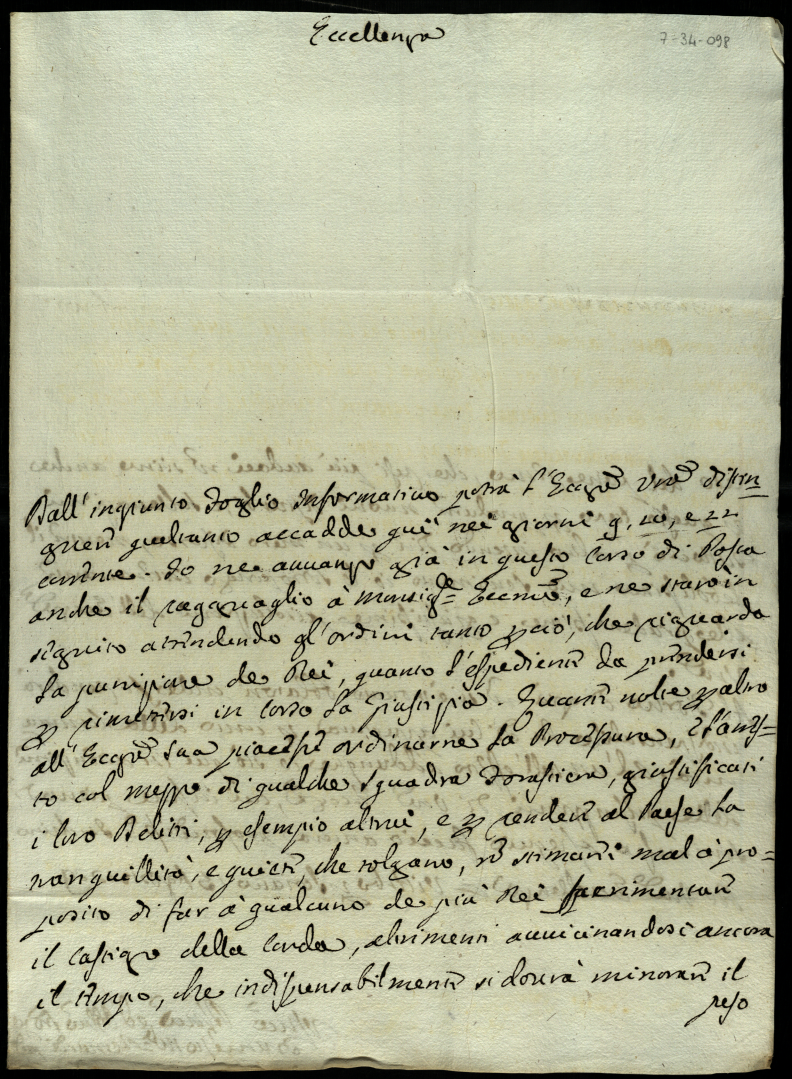 Eccellenza
7-34-098
Dall'ingiunto Foglio Informativo potrà l'Ecc. Vra distin=
guere quel tanto accadde qui nei giorni 9, 10, e 11
corrente. Io ne avvanzo già in questo Corso di Posta
anche il ragguaglio à Monsig.re Eccmo, e ne starò in
seguito attendendo gl'ordini tanto p ciò, che riguarda
la punizione de Rei, quanto l'espediente da prendersi
p rimettersi in Corso la Giustizia. Quante volte p altro
all'Ecc. Sua piacesse ordinarne la Processura, e l'arres=
to col mezzo di qualche Squadra Forastiera, giustificati
i loro Delitti, p esempio altrui, e p rendere al Paese la
tranquillità, e quiete, che tolgano, nō stimarei mal à pro=
posito di far à qualcuno de più Rei sperimentare
il Castigo della Corda, altrimenti avvicinandosi ancora
il tempo, che indispensabilmente si dovrà minorare il
peso